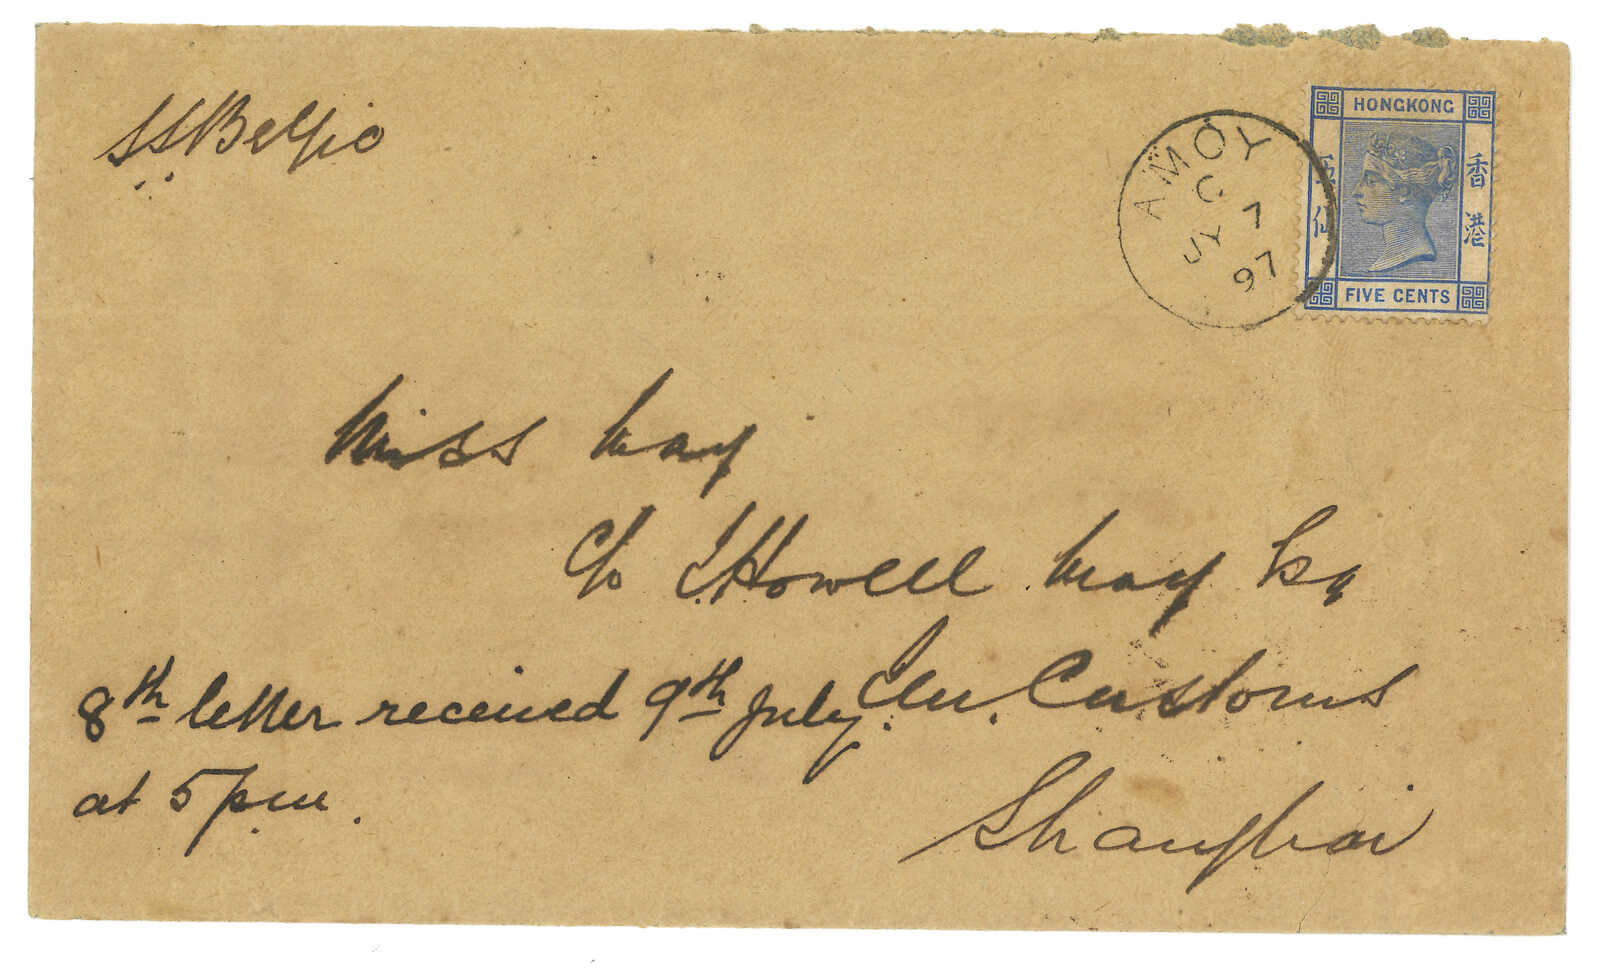 SS Belgic
HONGKONG
香港
五仙
FIVE CENTS
AMOY
C
JY 7
97
Miss May
C/o J. Howell May Esq
8th letter received 9th July.
Customs
at 5 pm.
Shanghai